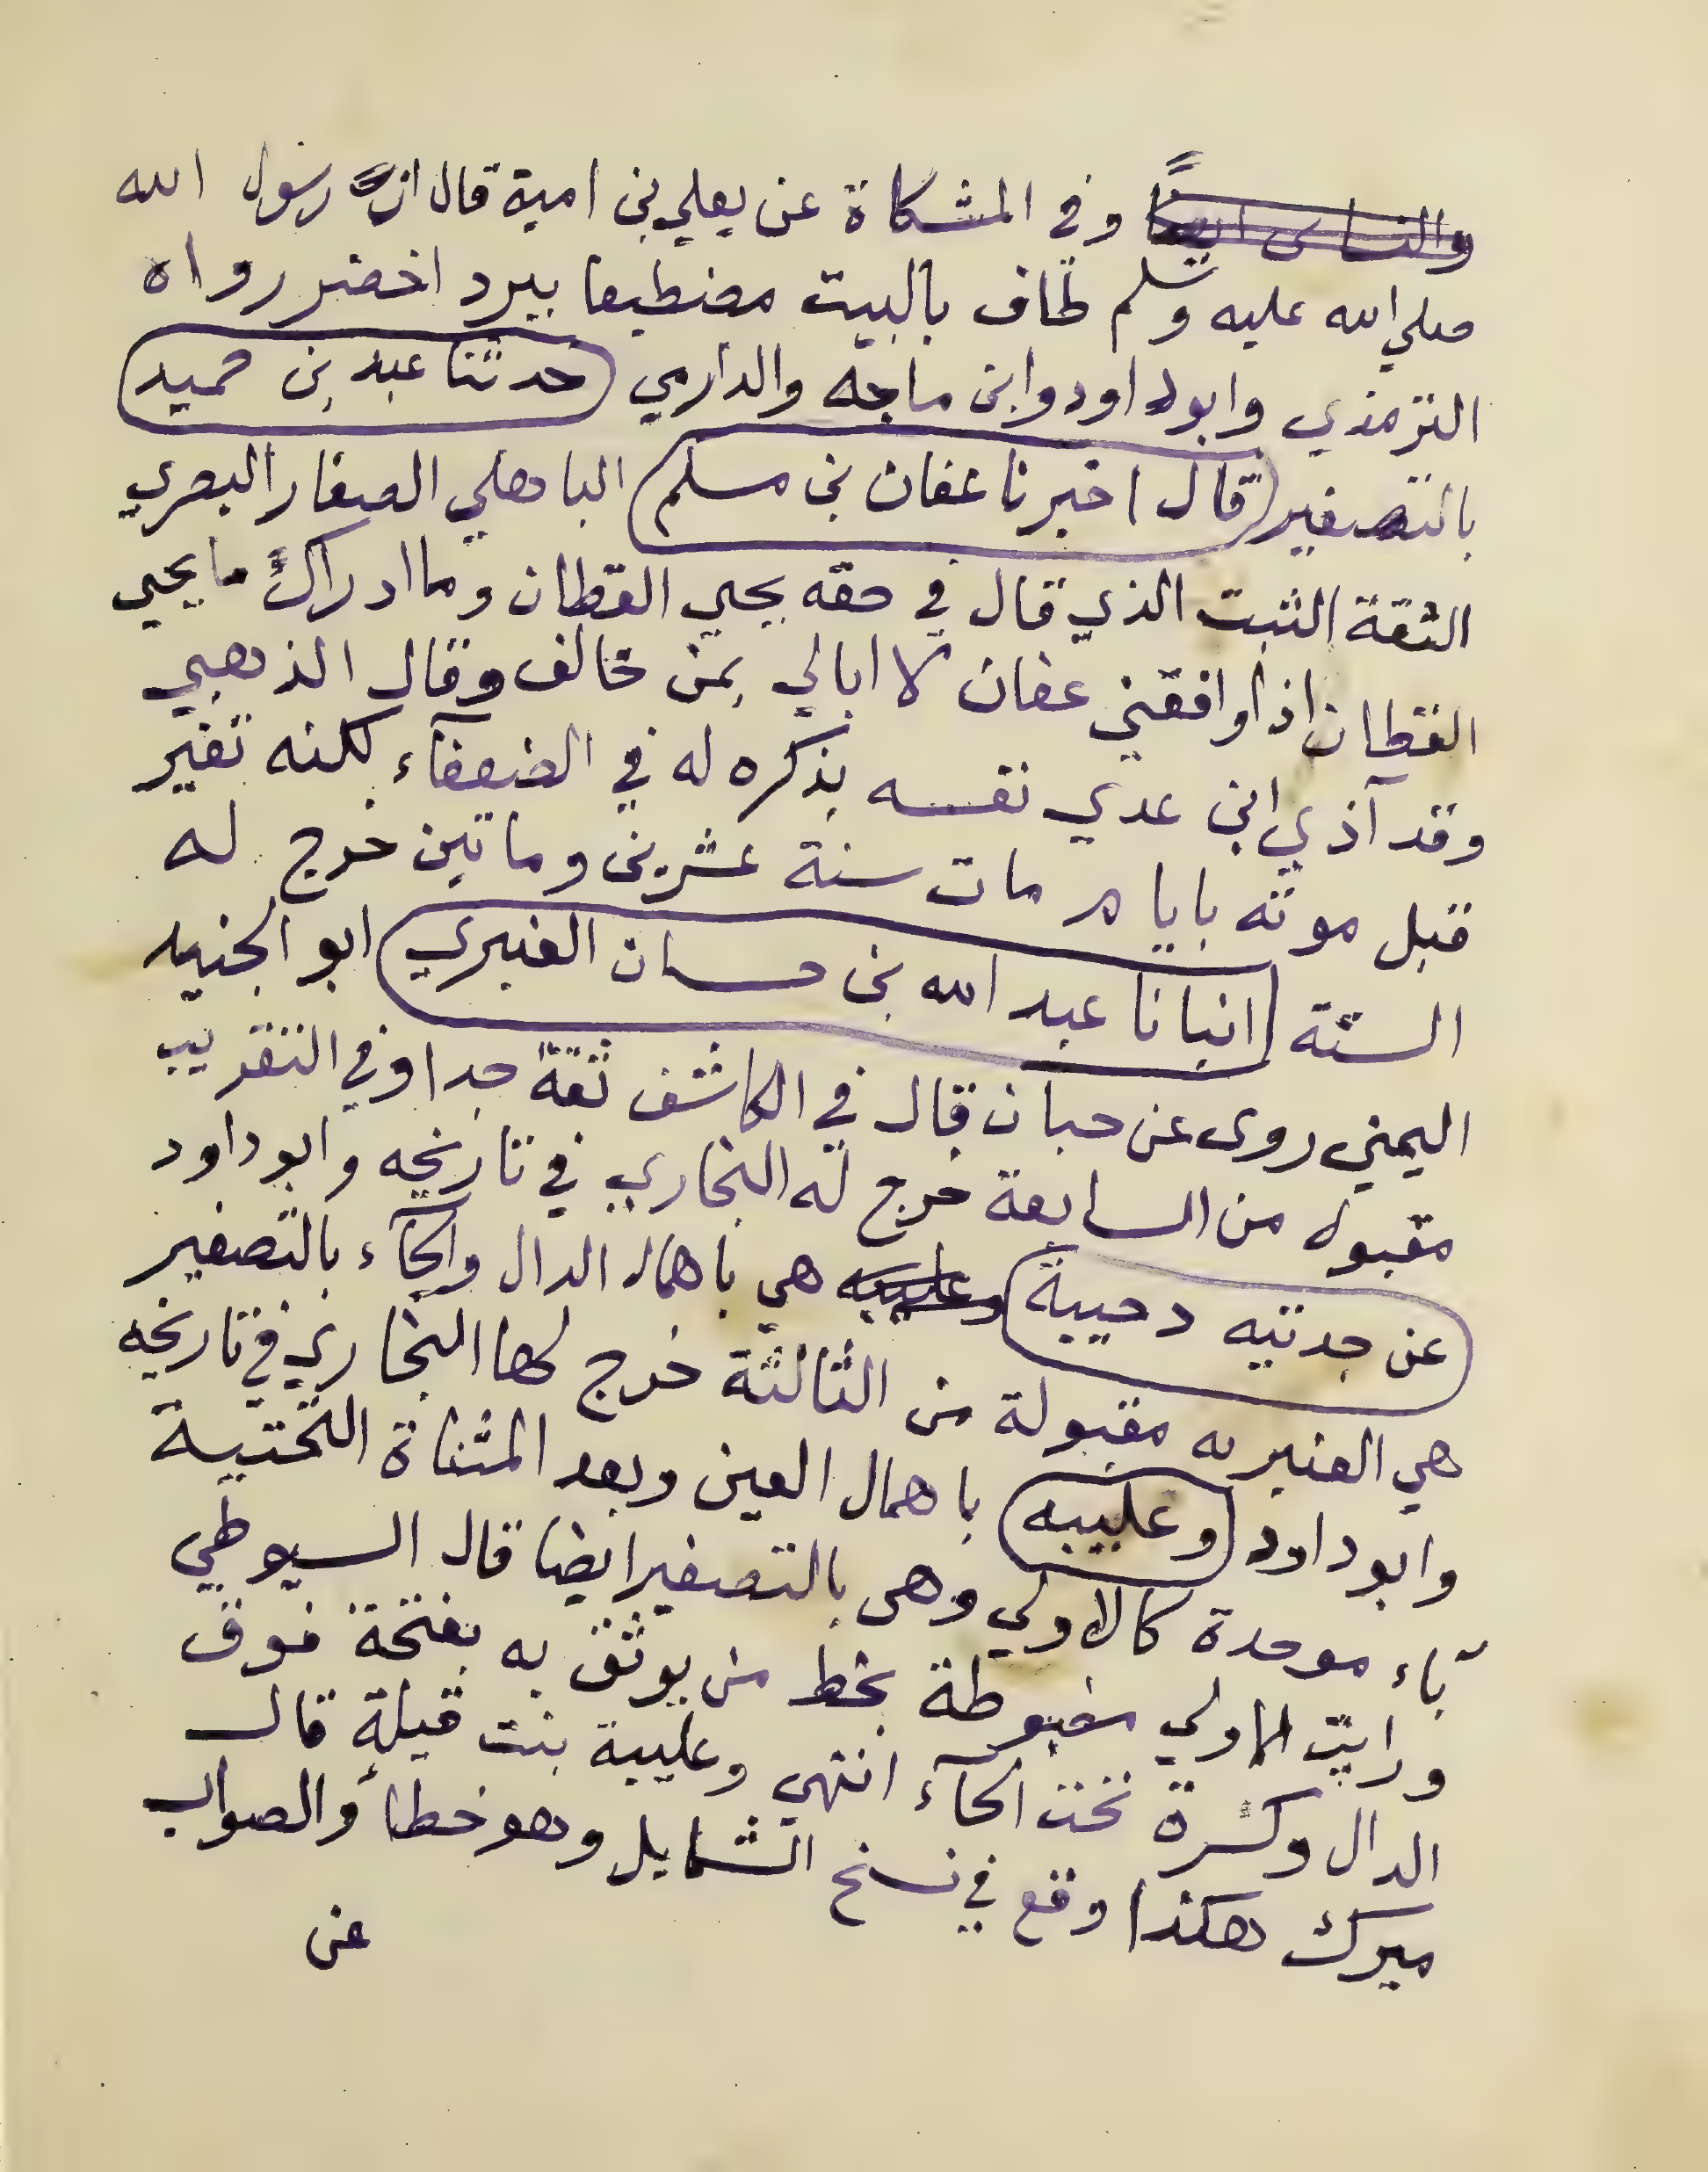 وفي المشكاة عن يعلي بن امية قال ان رسول الله
صلي الله عليه وسلم طاف بالبيت مضطبعا ببرد اخضر رواه
الترمذي وابوداود وابن ماجه والدارمي حدثنا عبد بن حميد
بالتصغير قال اخبرنا عفان بن مسلم الباهلي الصفار البصري
الثقة الثبت الذي قال في حقه يحيي القطان وما ادراك ما يحيي
القطان اذا وافقني عفان لا ابالي بمن خالف وقال الذهبي
وقد آذي ابن عدي نفسه بذكره له في الضعفآء لكنه تغير
قبل موته بايام مات سنة عشرين وماتين خرج له
الستة انبانا عبد الله بن حسان العنبري ابو الجنيد
اليمني روى عن حبان قال في الكاشف ثقة جدا وفي التقريب
مقبول من السابعة خرج له البخاري في تاريخه وابوداود
عن جدتيه دحيبة وعليبه هي باهمال الدال والحآء بالتصغير
هي العنبريه مقبولة من الثالثة خرج لها البخاري في تاريخه
وابوداود وعليبه باهمال العين وبعد المثناة التحتية
بآء موحدة كالاولي وهى بالتصغير ايضا قال السيوطي
ورايت الاولي مضبوطة بخط من يوثق به بفتحة فوق
الدال وكسرة تحت الحآء انتهي وعليبة بنت قيلة قال
ميرك هكذا وقع في نسخ الشمايل وهو خطأ والصواب
عن